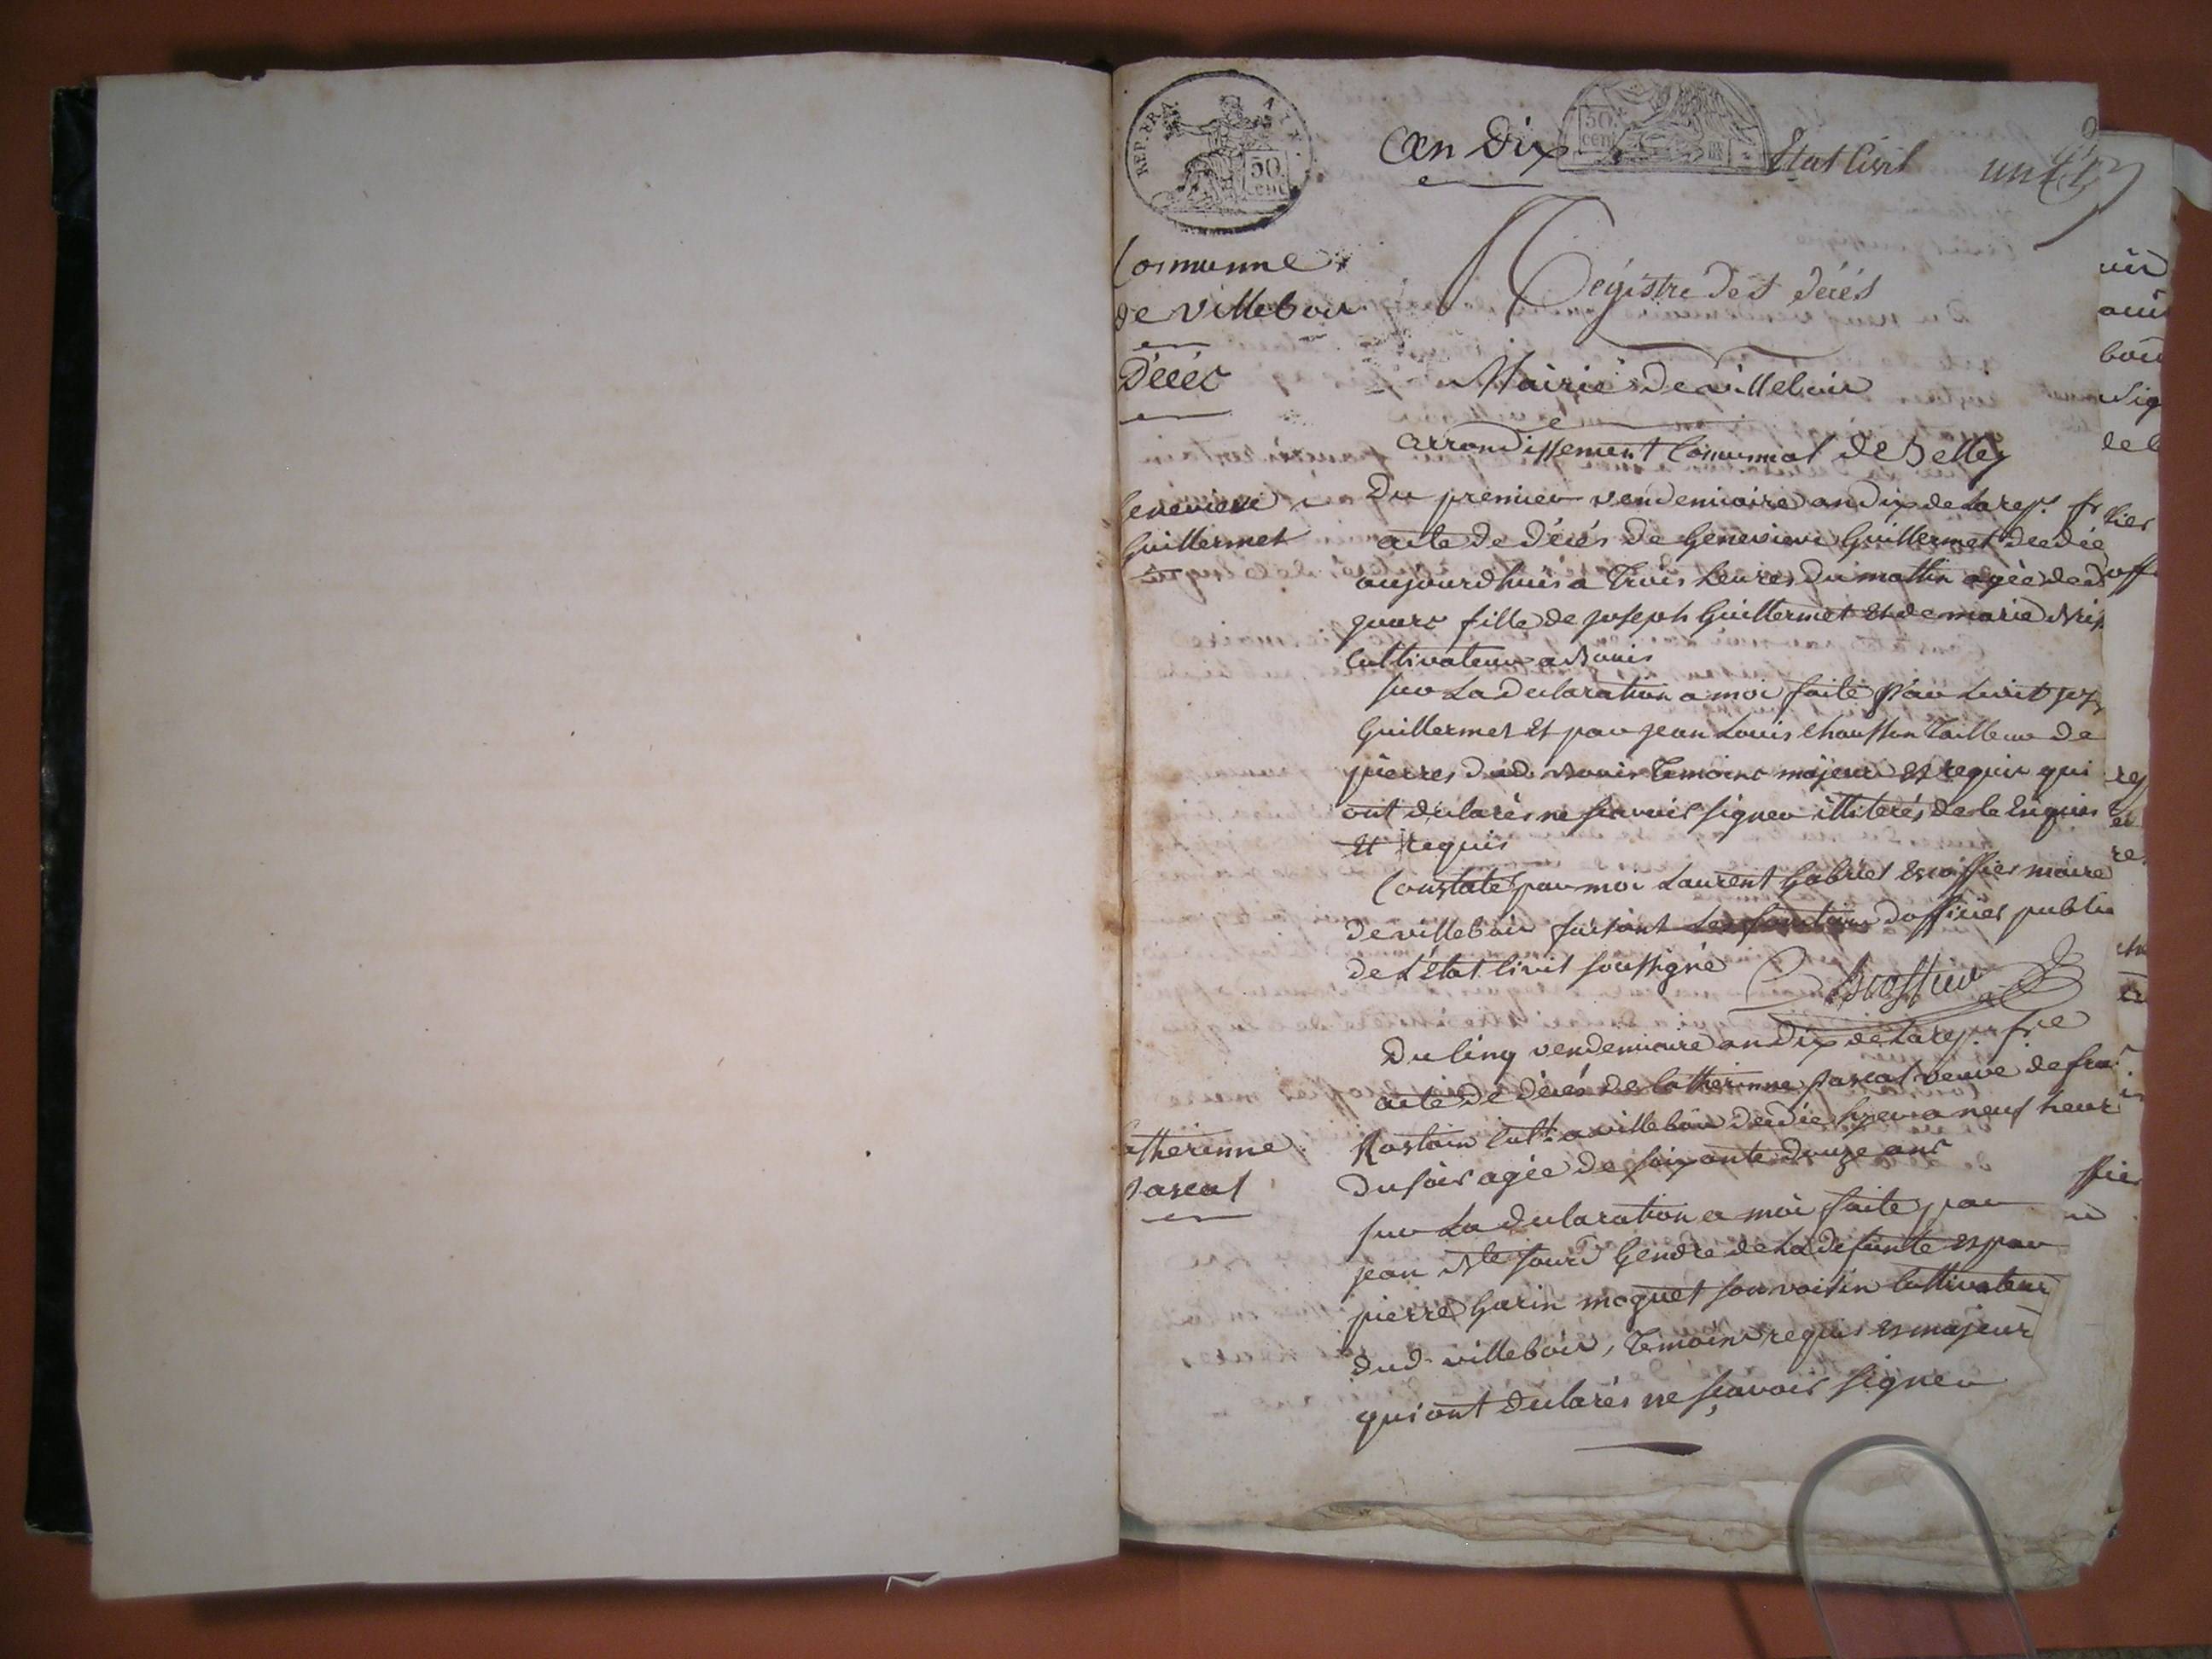 REP. FRA.
50 cent
50 cent
an Dix
Etat Civil
un
Commune
de villebois
Décés
Régistre des décés
Mairie de villebois
arrondissement Communal de Belley
Genevieve
Guillermet
Du premier vendemiaire an dix de la rep. fr
acte de décés de Genevieve Guillermet decedée
aujourdhuis a trois heures du mattin agée de
jours fille de joseph Guillermet et de marie
Cultivateur a Bouis
sur la declaration a moi faite par ledit
Guillermet et par jean Louis Chausson Tailleur de
pierres dud. Bouis temoins majeur et requis qui
ont declarés ne scavoir signer illiterés de le enquis
et requis
Constaté par moi Laurent Gabriel Escoffier maire
de villebois faisant les fonctions dofficier public
de L'état Civil soussigné
Escoffier
Catherinne
pascal
Du Cinq vendemiaire an dix de la rep. fse
acte de décés de Catherinne pascal veuve de
Rostain Cult. a villebois decedée hyer a neuf heur
du soir agée de soixante douze ans
sur la declaration a moi faite par
jean Bte sourd Gendre de la defunte et par
pierre Garin moquet son voisin Cultivateur
dud. villebois, temoins requis et majeur
qui ont declarés ne sçavoir signer